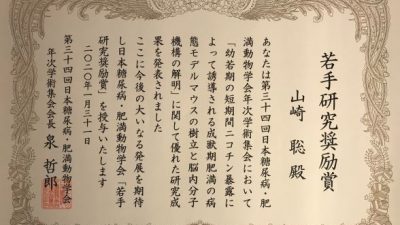 若手研究奨励賞
山崎 聡 殿
あなたは第三四回日本糖尿病・肥
満動物学会年次学術集会において
「幼若期の短期間ニコチン暴露に
よって誘導される成獣期肥満の病
態モデルマウスの樹立と脳内分子
機構の解明」に関して優れた研究成
果を発表されました
ここに今後の大いなる発展を期待
し日本糖尿病・肥満動物学会「若手
研究奨励賞」を授与いたします
二〇二〇年一月三十一日
第三十四回日本糖尿病・肥満動物学会
年次学術集会会長 泉 哲郎